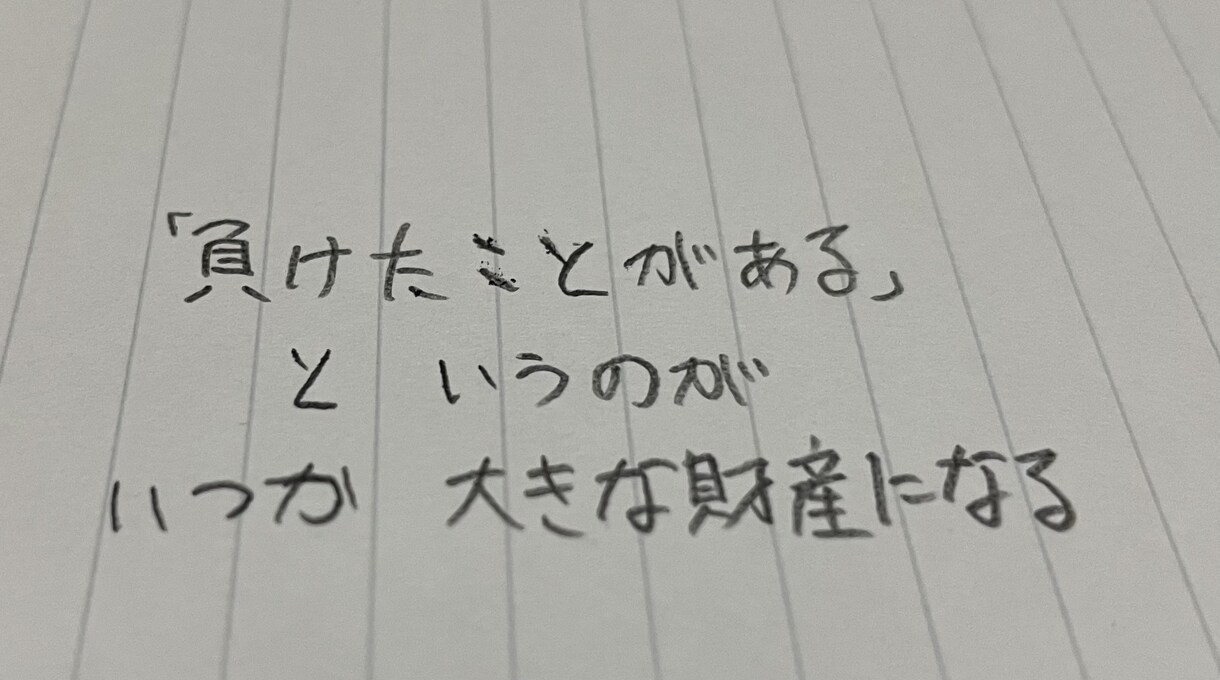 「負けたことがある」
というのが
いつか 大きな財産になる